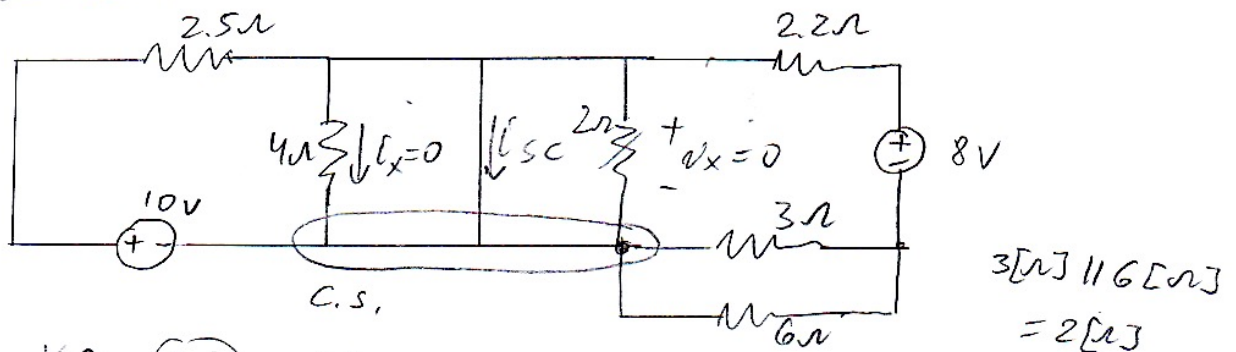 2.5Ω
2.2Ω
4Ω
iₓ=0
iSC
2Ω
+
vₓ=0
-
+
-
8V
10V
+ -
3Ω
3[Ω] || 6[Ω]
= 2[Ω]
C.S.
6Ω